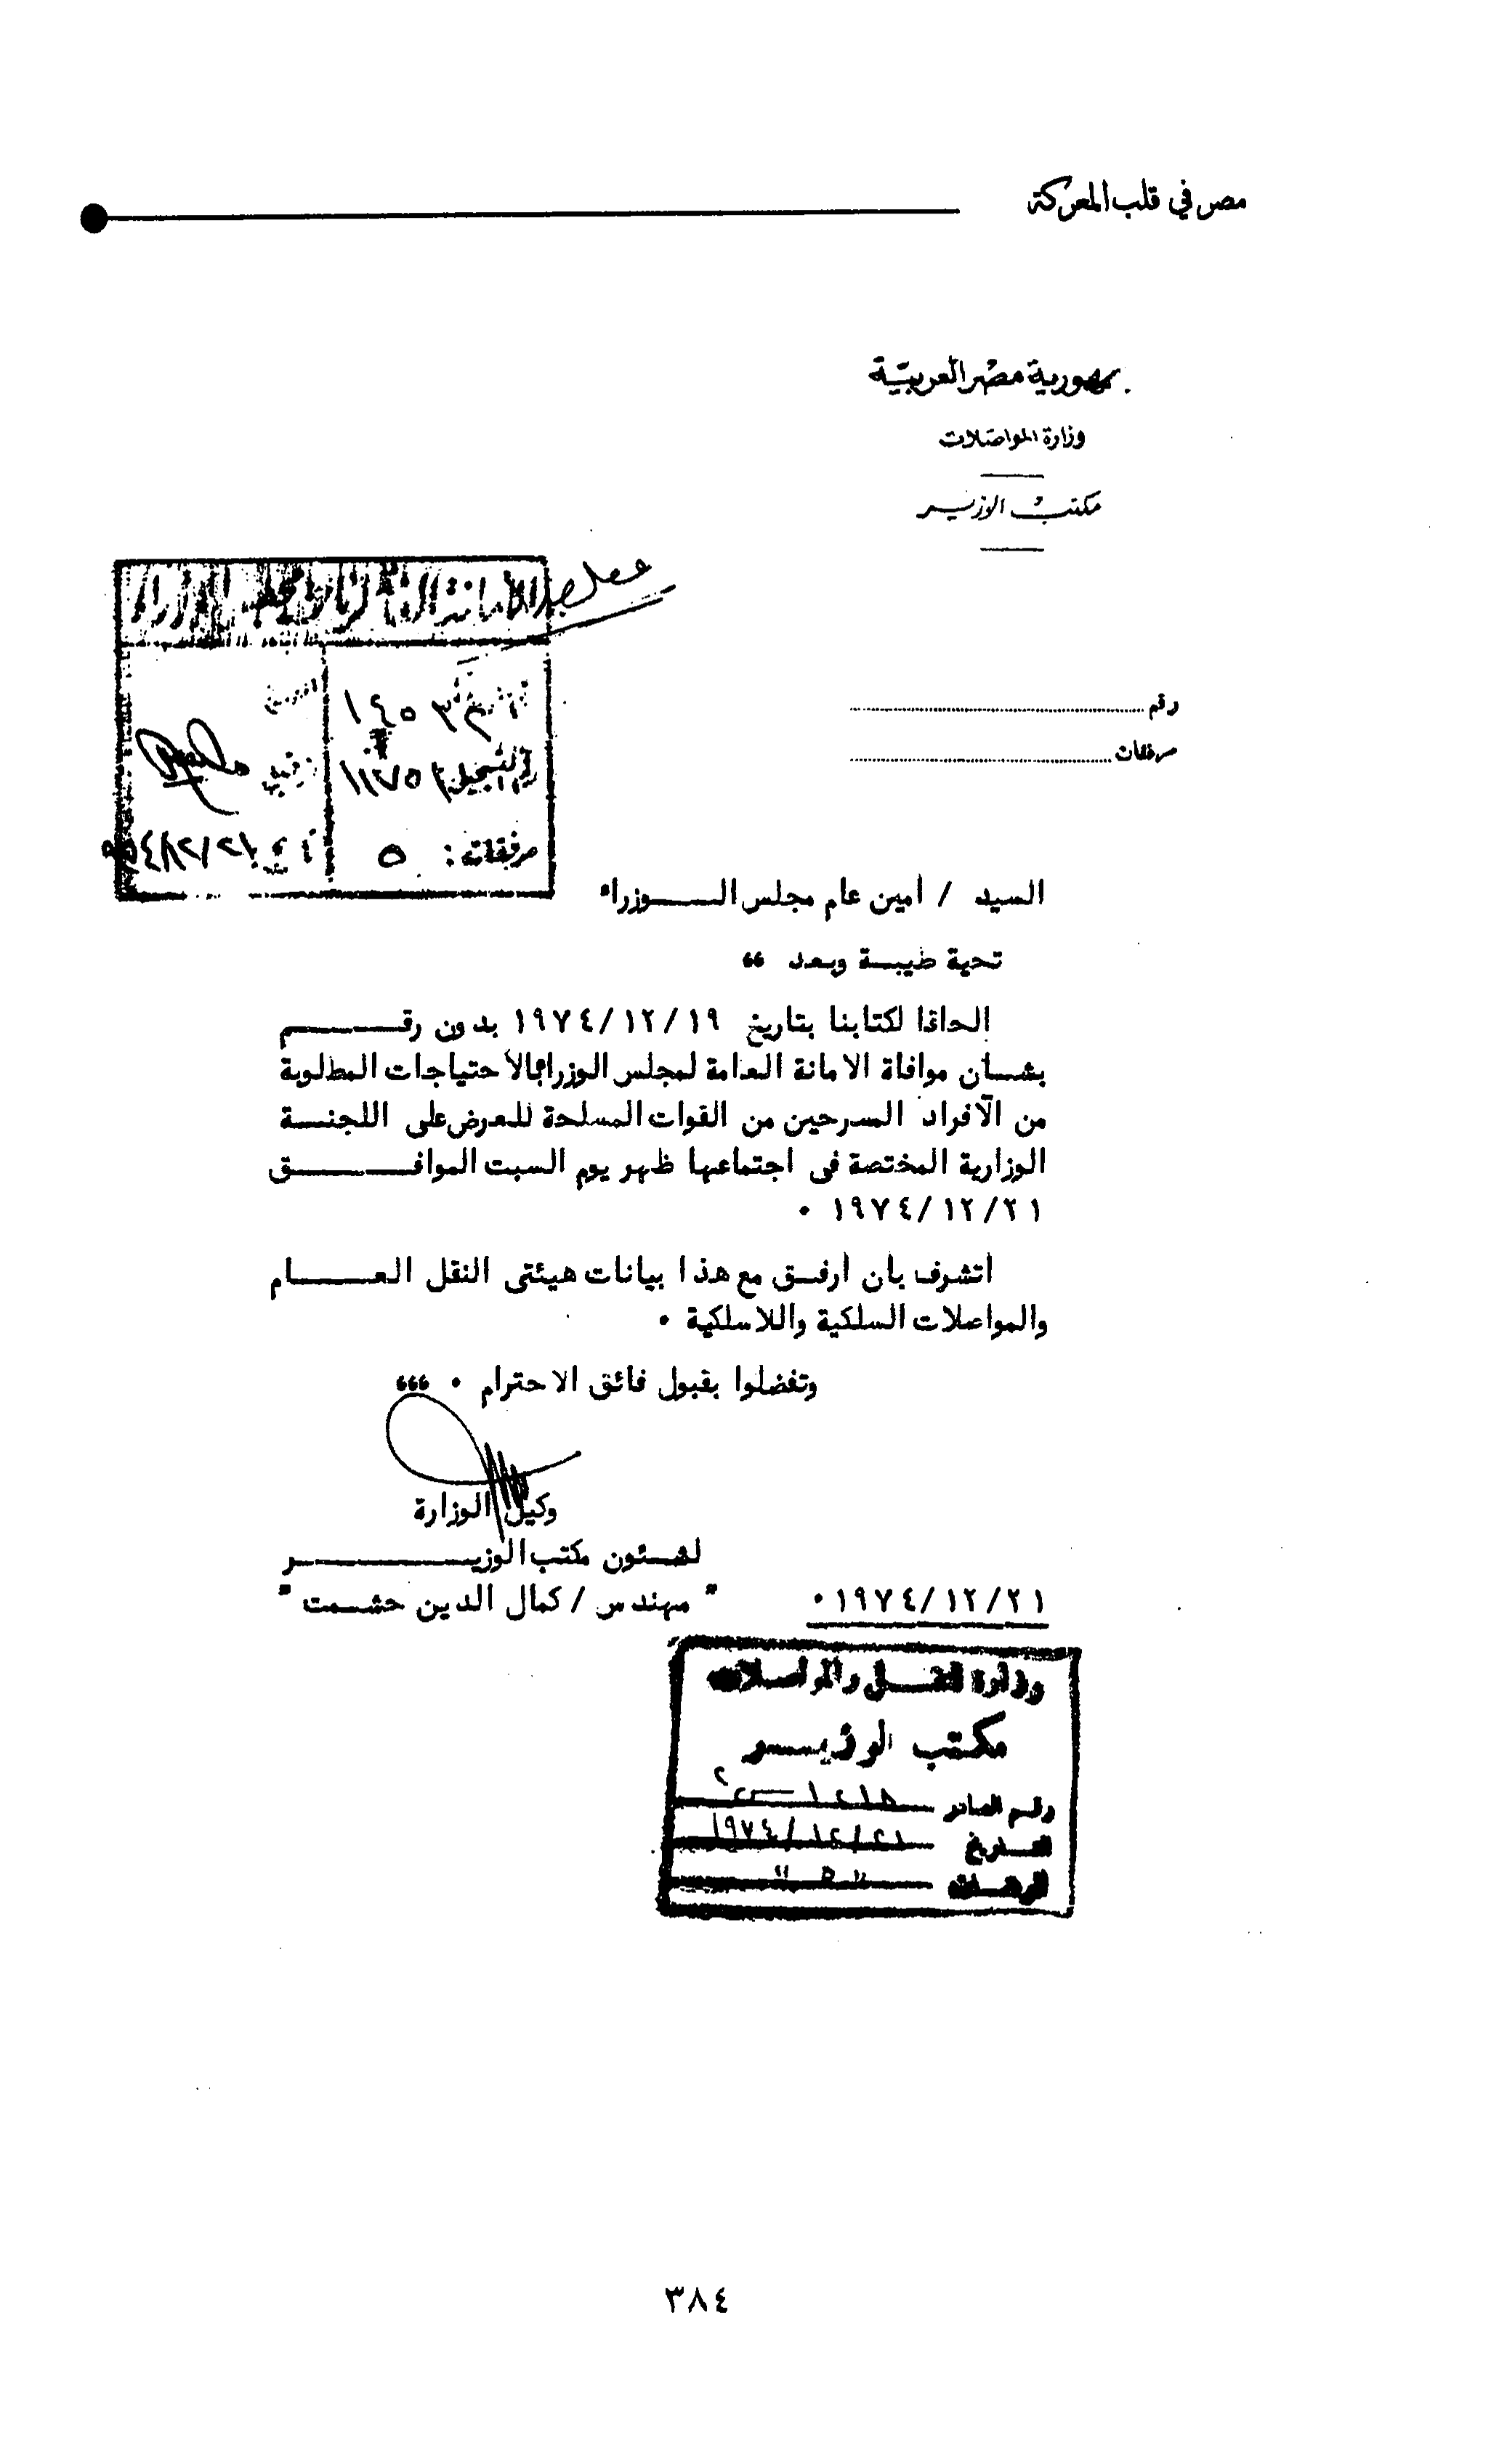 مصر في قلب المعركة
جمهورية مصر العربية
وزارة المواصلات
مكتب الوزير
رقم
مرفقات
مرفقاته : ٥
السيد / أمين عام مجلس الـــوزراء
تحية طيبة وبعد ،،
الحاقا لكتابنا بتاريخ ١٩٧٤/١٢/١٩ بدون رقــــم
بشــأن موافاة الامانة العامة لمجلس الوزراء بالاحتياجات المطلوبة
من الأفراد المسرحين من القوات المسلحة للعرض على اللجنــة
الوزارية المختصة فى اجتماعها ظهر يوم السبت الموافــــق
١٩٧٤/١٢/٢١ ٠
أتشرف بأن أرفــق مع هذا بيانات هيئتى النقل العــــام
والمواصلات السلكية واللاسلكية ٠
وتفضلوا بقبول فائق الاحترام ٠ ،،،
وكيل الوزارة
لشــئون مكتب الوزيــــــر
" مهندس / كمال الدين حشــمت "
١٩٧٤/١٢/٢١ ٠
وزارة النقــل والمواصلات
مكتب الوزيــر
رقــم الصادر
التــاريخ ١٩٧٤/١٢/٢١
المرفقــات " ٥ "
٣٨٤